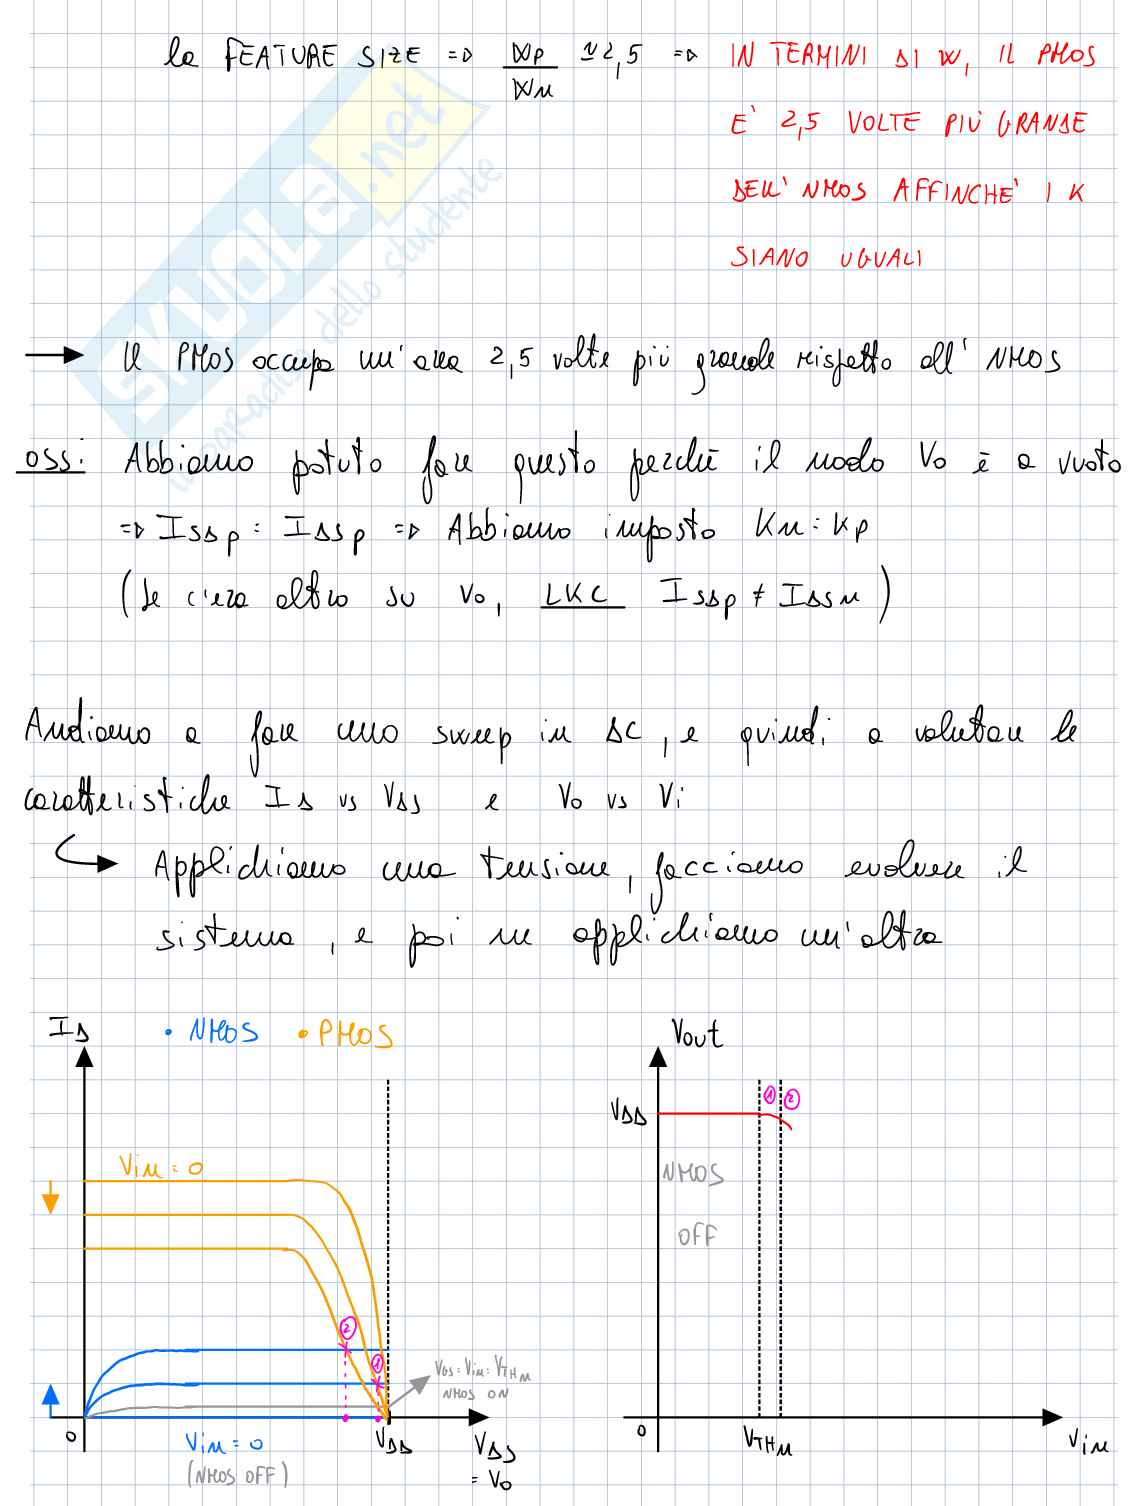 la FEATURE SIZE => Wp/Wn ≃ 2,5 => IN TERMINI DI W, IL PMOS
E' 2,5 VOLTE PIÙ GRANDE
DELL' NMOS AFFINCHE' I K
SIANO UGUALI
SKUOLA.net
paradiso dello studente
→ Il PMOS occupa un'area 2,5 volte più grande rispetto all' NMOS
OSS: Abbiamo potuto fare questo perché il nodo Vo è a vuoto
=> ISDp = IDSp => Abbiamo imposto Kn = Kp
(Se c'era altro su Vo, LKC ISDp ≠ IDSn)
Andiamo a fare uno sweep in DC, e quindi a valutare le
caratteristiche ID vs VDS e Vo vs Vi
Applichiamo una tensione, facciamo evolvere il
sistema, e poi ne applichiamo un'altra
ID • NMOS • PMOS
Vin = 0
2
1
VGS = Vin = VTHn
NMOS ON
0
VDD
VDS
= Vo
Vin = 0
(NMOS OFF)
Vout
1 2
VDD
NMOS
OFF
0
VTHn
Vin